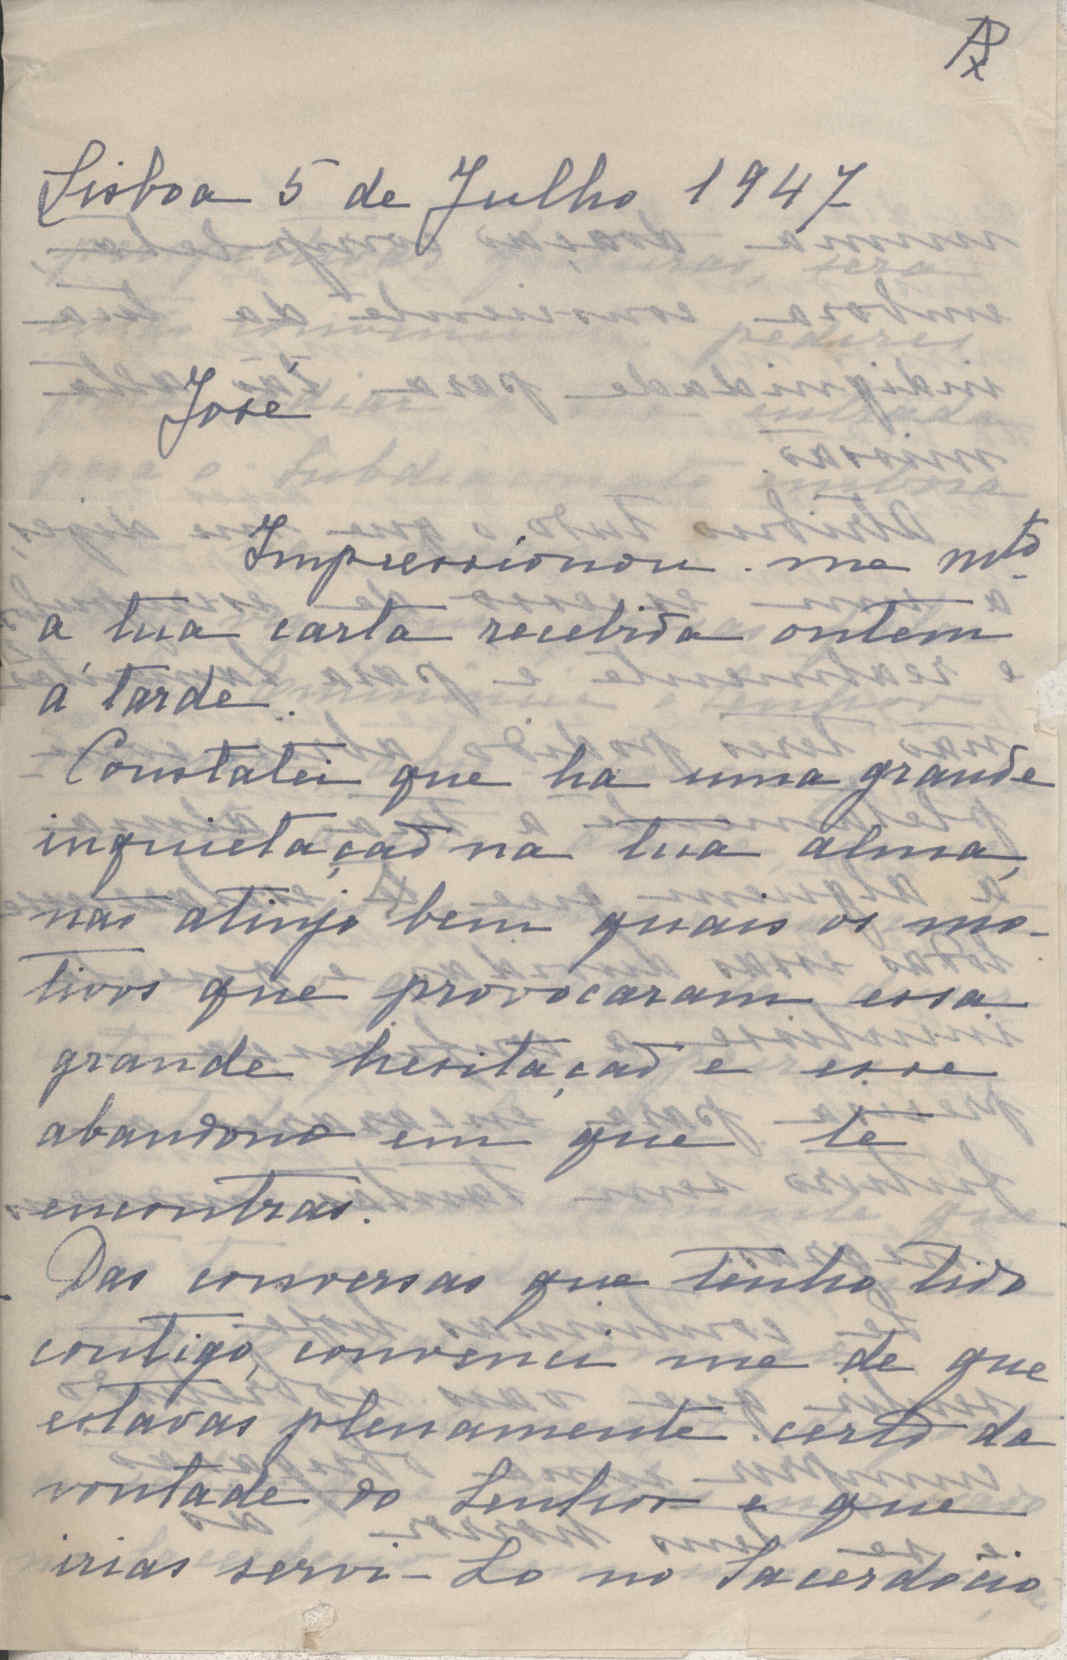 Lisboa 5 de Julho 1947
José
Impressionou-me mto
a tua carta recebida ontem
á tarde.
Constatei que ha uma grande
inquietação na tua alma,
não atinjo bem quais os mo-
tivos que provocaram essa
grande hesitação e esse
abandono em que te
encontras.
Das conversas que tenho tido
contigo, convenci me de que
estavas plenamente certo da
vontade do Senhor e que
irias servi-Lo no Sacerdócio